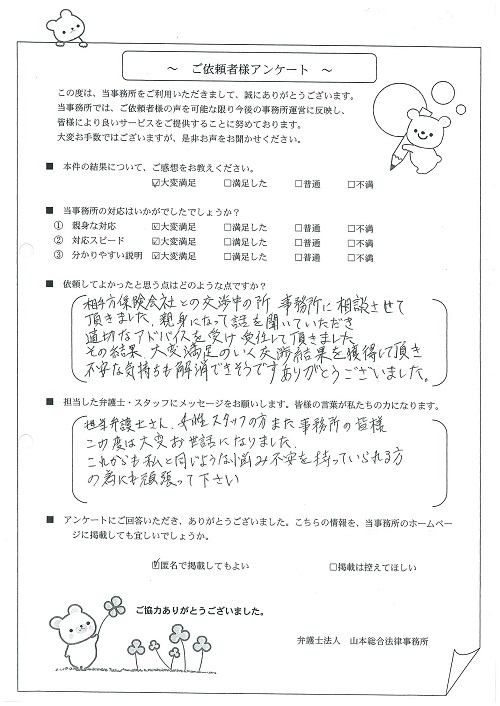 ～ ご依頼者様アンケート ～
この度は、当事務所をご利用いただきまして、誠にありがとうございます。
当事務所では、ご依頼者様の声を可能な限り今後の事務所運営に反映し、
皆様により良いサービスをご提供することに努めております。
大変お手数ではございますが、是非お声をお聞かせください。
■ 本件の結果について、ご感想をお教えください。
☑大変満足 □満足した □普通 □不満
■ 当事務所の対応はいかがでしたでしょうか？
① 親身な対応 ☑大変満足 □満足した □普通 □不満
② 対応スピード ☑大変満足 □満足した □普通 □不満
③ 分かりやすい説明 ☑大変満足 □満足した □普通 □不満
■ 依頼してよかったと思う点はどのような点ですか？
相手方保険会社との交渉中の所 事務所に相談させて
頂きました。親身になって話を聞いていただき
適切なアドバイスを受け受任して頂きました
その結果、大変満足のいく交渉結果を獲得して頂き
不安な気持ちも解消できそうです ありがとうございました。
■ 担当した弁護士・スタッフにメッセージをお願いします。皆様の言葉が私たちの力になります。
担当弁護士さん、女性スタッフの方また事務所の皆様
この度は大変お世話になりました。
これからも私と同じような悩み不安を持っていられる方
の為にも頑張って下さい
■ アンケートにご回答いただき、ありがとうございました。こちらの情報を、当事務所のホームペー
ジに掲載しても宜しいでしょうか。
☑匿名で掲載してもよい □掲載は控えてほしい
ご協力ありがとうございました。
弁護士法人 山本総合法律事務所